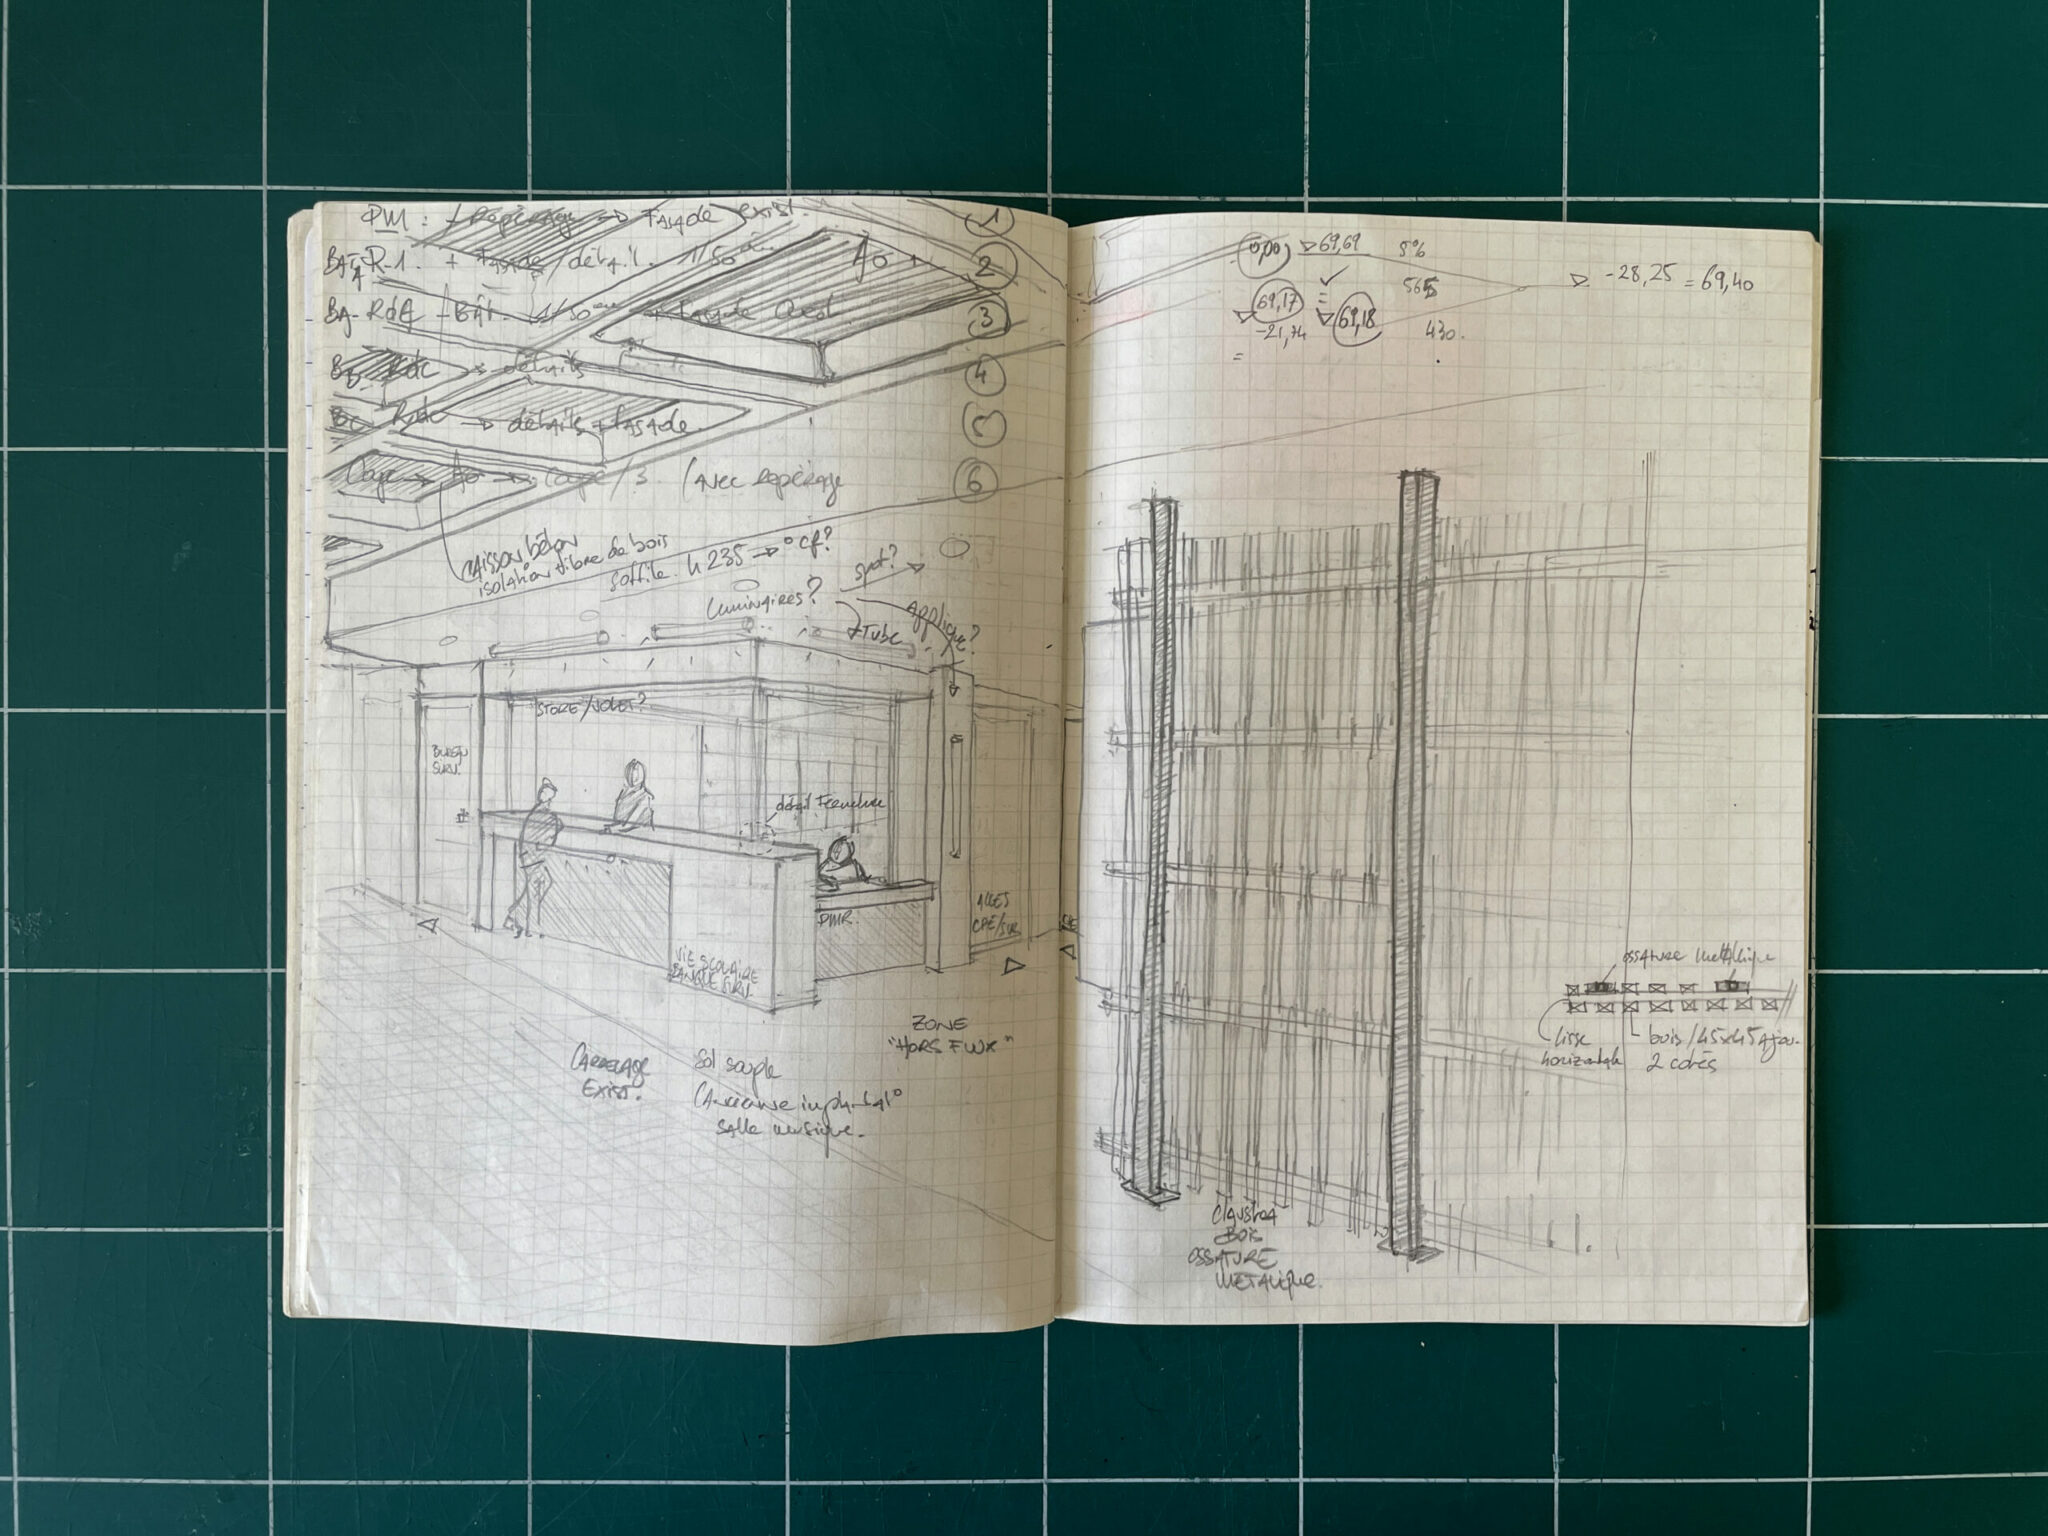 PM : + Repérage → Façade exist. 1
BAT A R-1. + façade/détail. 1/50 ème A0 + 2
BA- RdC - BAT. 1/50 ème + façade Ouest. 3
BB. RdC → détails 4
BC RdC → détails + façade. 5
Coupe → A0 → Coupe/3. (avec repérage 6
caisson béton
isolation fibre de bois
soffite. h 235 → ° cf?
luminaires?
spot?
Tube
applique?
STORE/VOLET?
BUREAU
SURV.
détail Fermeture
PMR.
ACCES
CPE/SUR
VIE SCOLAIRE
BANQUE SURV.
ZONE
"HORS FLUX"
CARRELAGE
EXIST.
Sol souple
(Ancienne implantat°
salle musique.
0,00 69,69 5%
-28,25 = 69,40
69,17 = 69,18
565
-21,74
430.
=
ossature métallique
lisse
horizontale
bois/45x45 Ajou.
2 cotés
CLAUSTRA
BOIS
OSSATURE
METALIQUE.